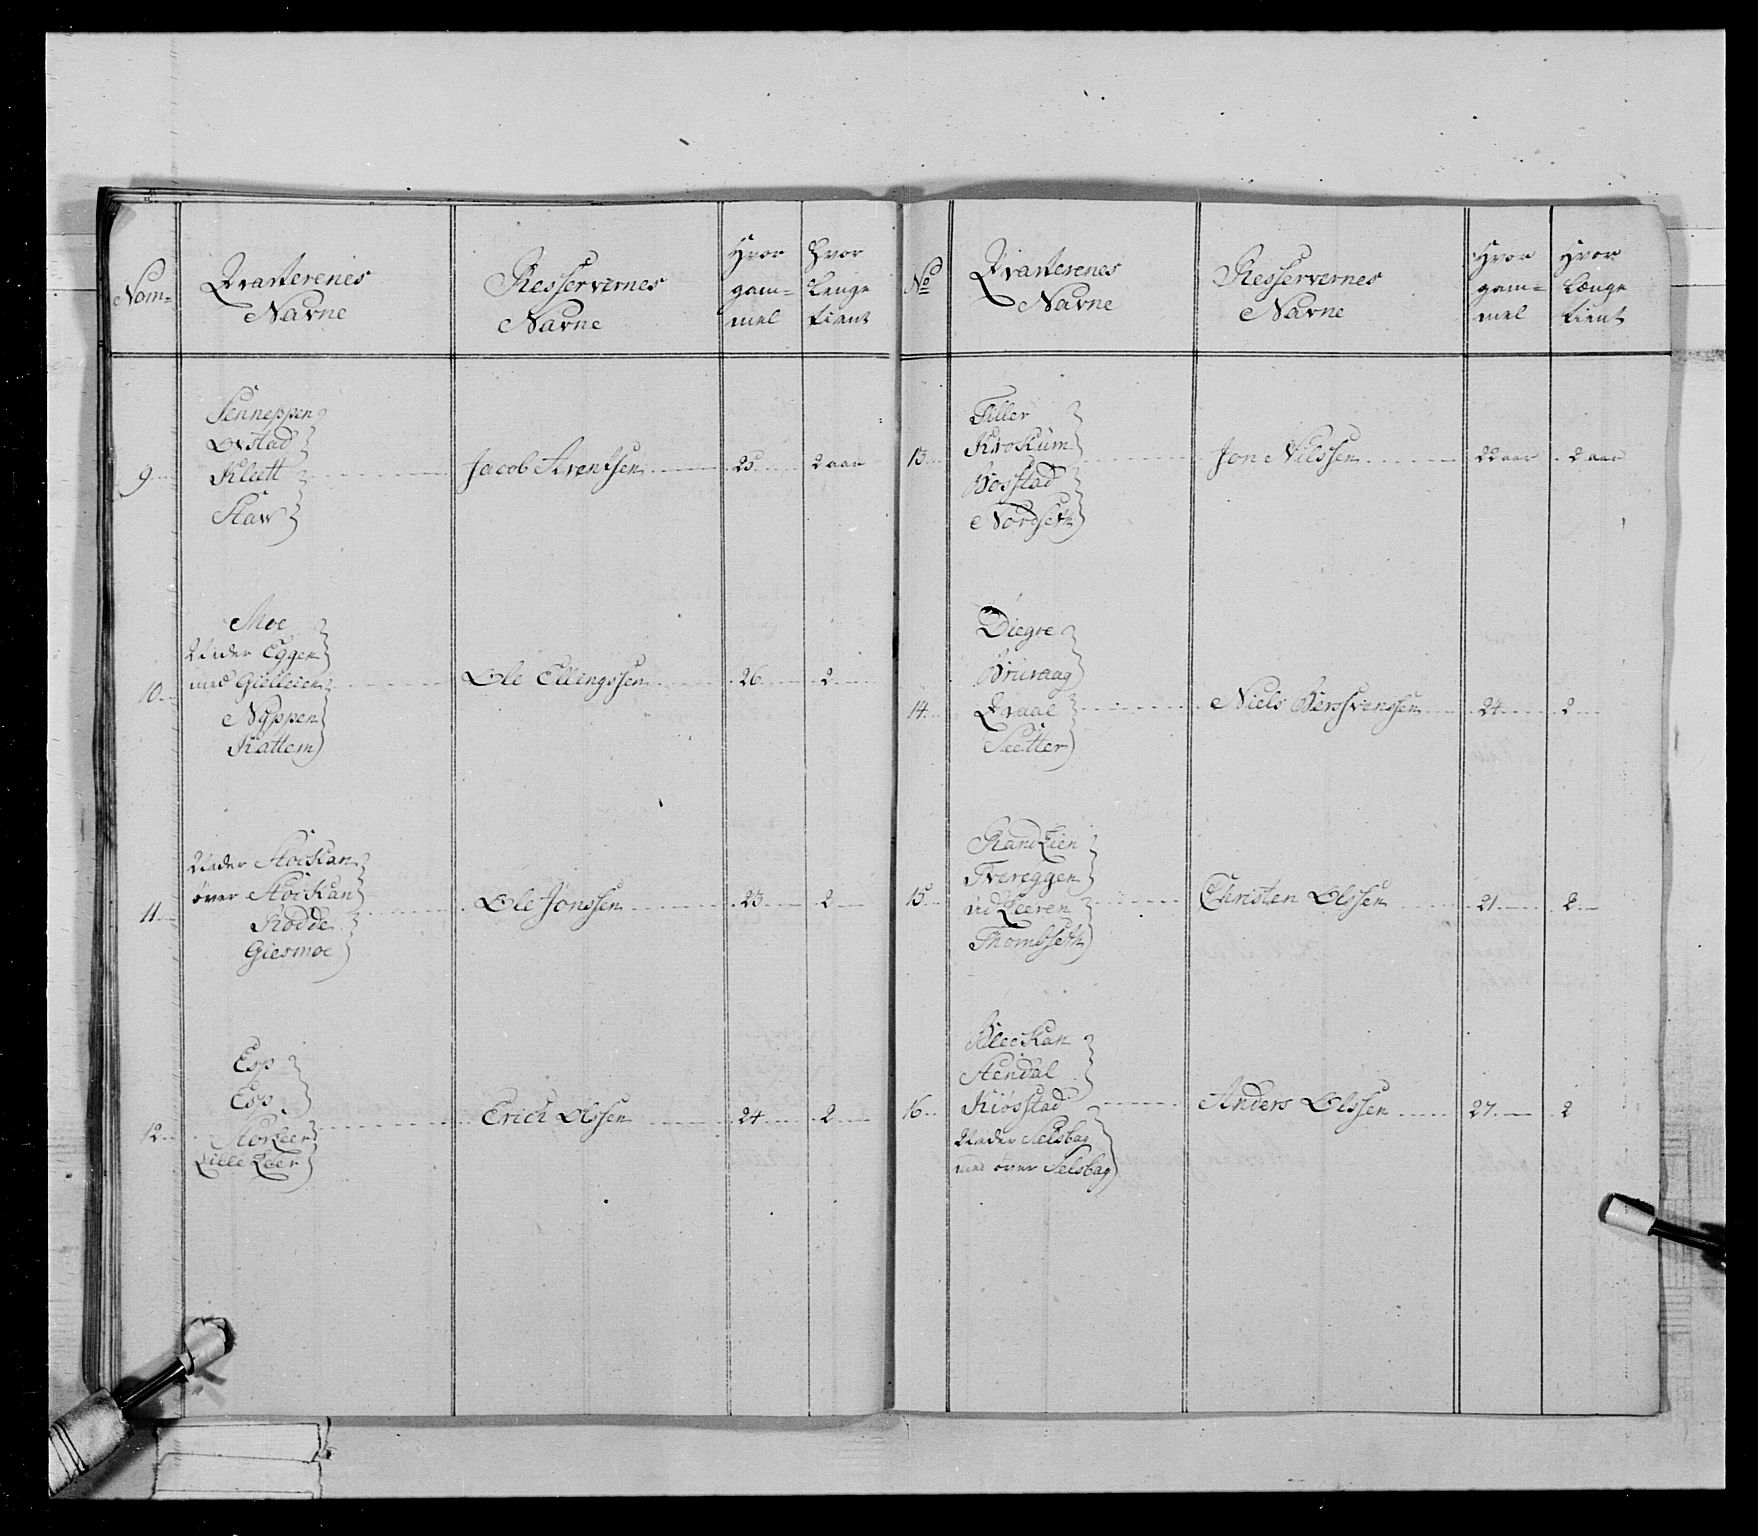 Nom=
Qvarterenes
Navne
Resservernes
Navne
Hvor
gam=
mel
Hvor
lenge
tient
9
Senneppen
Øvstad
Klett
Skav
Jacob Arentsen
25
2 aar
10
Moe
Neder Eggen
med Gielleien
Nyppen
Kattem
Ole Ellingssen
26
2
11
Neder Støckan
över Støckan
Rodde
Giesmoe
Ole Jonssen
23
2
12
Esp
Esp
Stor Leer
Lille Leer
Erich Olssen
24
2
No
Qvarterenes
Navne
Resservernes
Navne
Hvor
gam=
mel
Hvor
længe
tient
13
Tiller
Kroküm
Bosstad
Nordseth
Jon Nilssen
22 aar
2 aar
14
Diegre
Brüraag
Qvaal
Sætter
Niels Berssvenssen
24
2
15
Randlien
Tvereggen
üd Leeren
Thombseth
Christen Olssen
21
2
16
Bleckan
Stendal
Kiösstad
Neder Selsbag
med över Selsbag
Anders Olssen
27
2